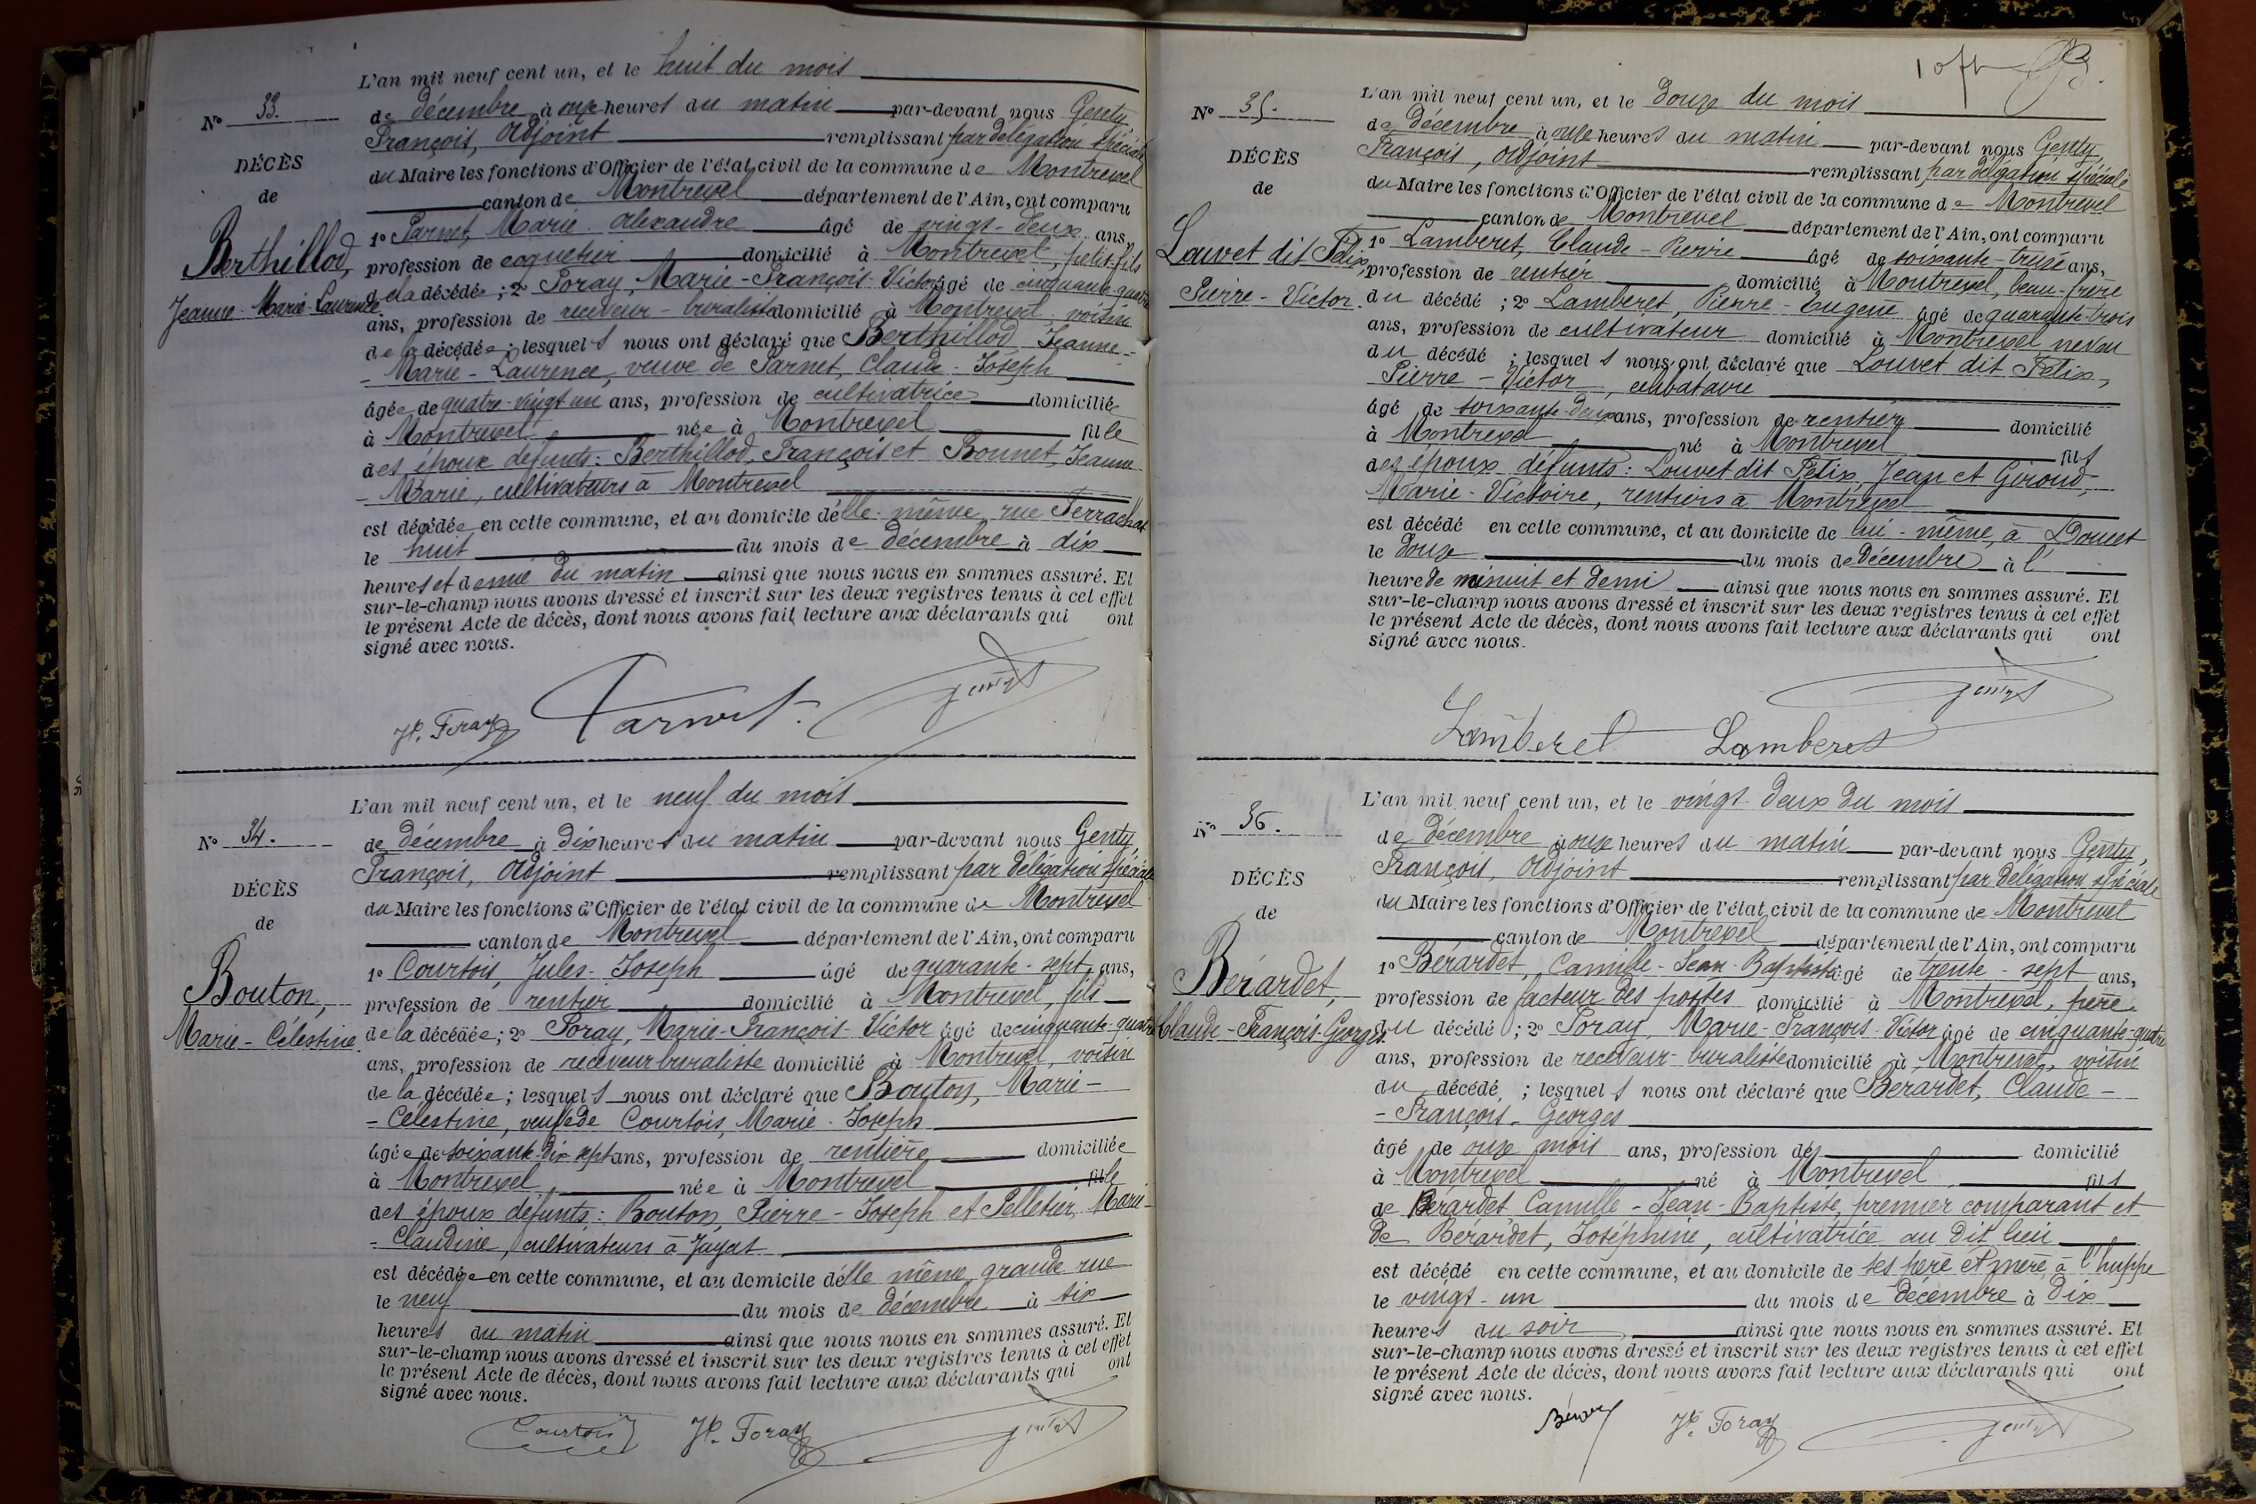 L'an mil neuf cent un, et le huit du mois
No 33.
de décembre à onze heures du matin par-devant nous Genty,
François, Adjoint remplissant par délégation spéciale
DÉCÈS
du Maire les fonctions d'Officier de l'état civil de la commune de Montrevel
de
canton de Montrevel département de l'Ain, ont comparu
1o Parnet, Marie Alexandre âgé de vingt-deux ans,
Berthillod,
profession de coquetier domicilié à Montrevel, petit-fils
Jeanne-Marie-Laurence.
de la décédée ; 2o Foray, Marie-François-Victor âgé de cinquante-quatre
ans, profession de receveur-buraliste domicilié à Montrevel, voisin
de la décédée ; lesquels nous ont déclaré que Berthillod Jeanne-
-Marie-Laurence, veuve de Parnet, Claude-Joseph
âgée de quatre-vingt un ans, profession de cultivatrice domiciliée
à Montrevel née à Montrevel fille
des époux défunts : Berthillod, François et Bonnet, Jeanne
-Marie, cultivateurs à Montrevel
est décédée en cette commune, et au domicile d'elle-même, rue Ferrachat
le huit du mois de décembre à dix
heures et demie du matin ainsi que nous nous en sommes assuré. Et
sur-le-champ nous avons dressé et inscrit sur les deux registres tenus à cet effet
le présent Acte de décès, dont nous avons fait lecture aux déclarants qui ont
signé avec nous.
V. Foray Parnet Genty
L'an mil neuf cent un, et le neuf du mois
No 34.
de décembre à dix heures du matin par-devant nous Genty,
François, Adjoint remplissant par délégation spéciale
DÉCÈS
du Maire les fonctions d'Officier de l'état civil de la commune de Montrevel
de
canton de Montrevel département de l'Ain, ont comparu
1o Courtois, Jules-Joseph âgé de quarante-sept ans,
Bouton,
profession de rentier domicilié à Montrevel, fils
Marie-Célestine.
de la décédée ; 2o Foray, Marie-François-Victor âgé de cinquante-quatre
ans, profession de receveur buraliste domicilié à Montrevel, voisin
de la décédée ; lesquels nous ont déclaré que Bouton, Marie-
-Célestine, veuve de Courtois, Marie-Joseph
âgée de soixante-dix sept ans, profession de rentière domiciliée
à Montrevel née à Montrevel fille
des époux défunts : Bouton, Pierre-Joseph et Pelletier, Marie-
-Claudine, cultivateurs à Jayat
est décédée en cette commune, et au domicile d'elle même, grande rue
le neuf du mois de décembre à six
heures du matin ainsi que nous nous en sommes assuré. Et
sur-le-champ nous avons dressé et inscrit sur les deux registres tenus à cet effet
le présent Acte de décès, dont nous avons fait lecture aux déclarants qui ont
signé avec nous.
Courtois V. Foray Genty
L'an mil neuf cent un, et le douze du mois
No 35.
de décembre à onze heures du matin par-devant nous Genty,
François, Adjoint remplissant par délégation spéciale
DÉCÈS
du Maire les fonctions d'Officier de l'état civil de la commune de Montrevel
de
canton de Montrevel département de l'Ain, ont comparu
1o Lamberet, Claude-Pierre âgé de soixante-treize ans,
Louvet dit Félix,
profession de rentier domicilié à Montrevel, beau-frère
Pierre-Victor.
du décédé ; 2o Lamberet, Pierre-Eugène âgé de quarante-trois
ans, profession de cultivateur domicilié à Montrevel neveu
du décédé ; lesquels nous ont déclaré que Louvet dit Félix,
Pierre-Victor, célibataire
âgé de soixante-deux ans, profession de rentier domicilié
à Montrevel né à Montrevel fils
des époux défunts : Louvet dit Félix, Jean et Giroud,
Marie-Victoire, rentiers à Montrevel
est décédé en cette commune, et au domicile de lui-même, à
le douze du mois de décembre à l'
heure de minuit et demi ainsi que nous nous en sommes assuré. Et
sur-le-champ nous avons dressé et inscrit sur les deux registres tenus à cet effet
le présent Acte de décès, dont nous avons fait lecture aux déclarants qui ont
signé avec nous.
Genty
Lamberet Lamberet
L'an mil neuf cent un, et le vingt-deux du mois
No 36.
de décembre à onze heures du matin par-devant nous Genty,
François, Adjoint remplissant par délégation spéciale
DÉCÈS
du Maire les fonctions d'Officier de l'état civil de la commune de Montrevel
de
canton de Montrevel département de l'Ain, ont comparu
1o Bérardet, Camille-Jean-Baptiste âgé de trente-sept ans,
Bérardet,
profession de facteur des postes domicilié à Montrevel, père
Claude-François-Georges.
du décédé ; 2o Foray, Marie-François-Victor âgé de cinquante-quatre
ans, profession de receveur-buraliste domicilié à Montrevel, voisin
du décédé ; lesquels nous ont déclaré que Bérardet, Claude-
-François-Georges
âgé de onze mois ans, profession de domicilié
à Montrevel né à Montrevel fils
de Bérardet Camille-Jean-Baptiste, premier comparant et
de Bérardet, Joséphine, cultivatrice au dit lieu
est décédé en cette commune, et au domicile de ses père et mère, à l'huppe
le vingt-un du mois de décembre à dix
heures du soir ainsi que nous nous en sommes assuré. Et
sur-le-champ nous avons dressé et inscrit sur les deux registres tenus à cet effet
le présent Acte de décès, dont nous avons fait lecture aux déclarants qui ont
signé avec nous.
V. Foray Genty